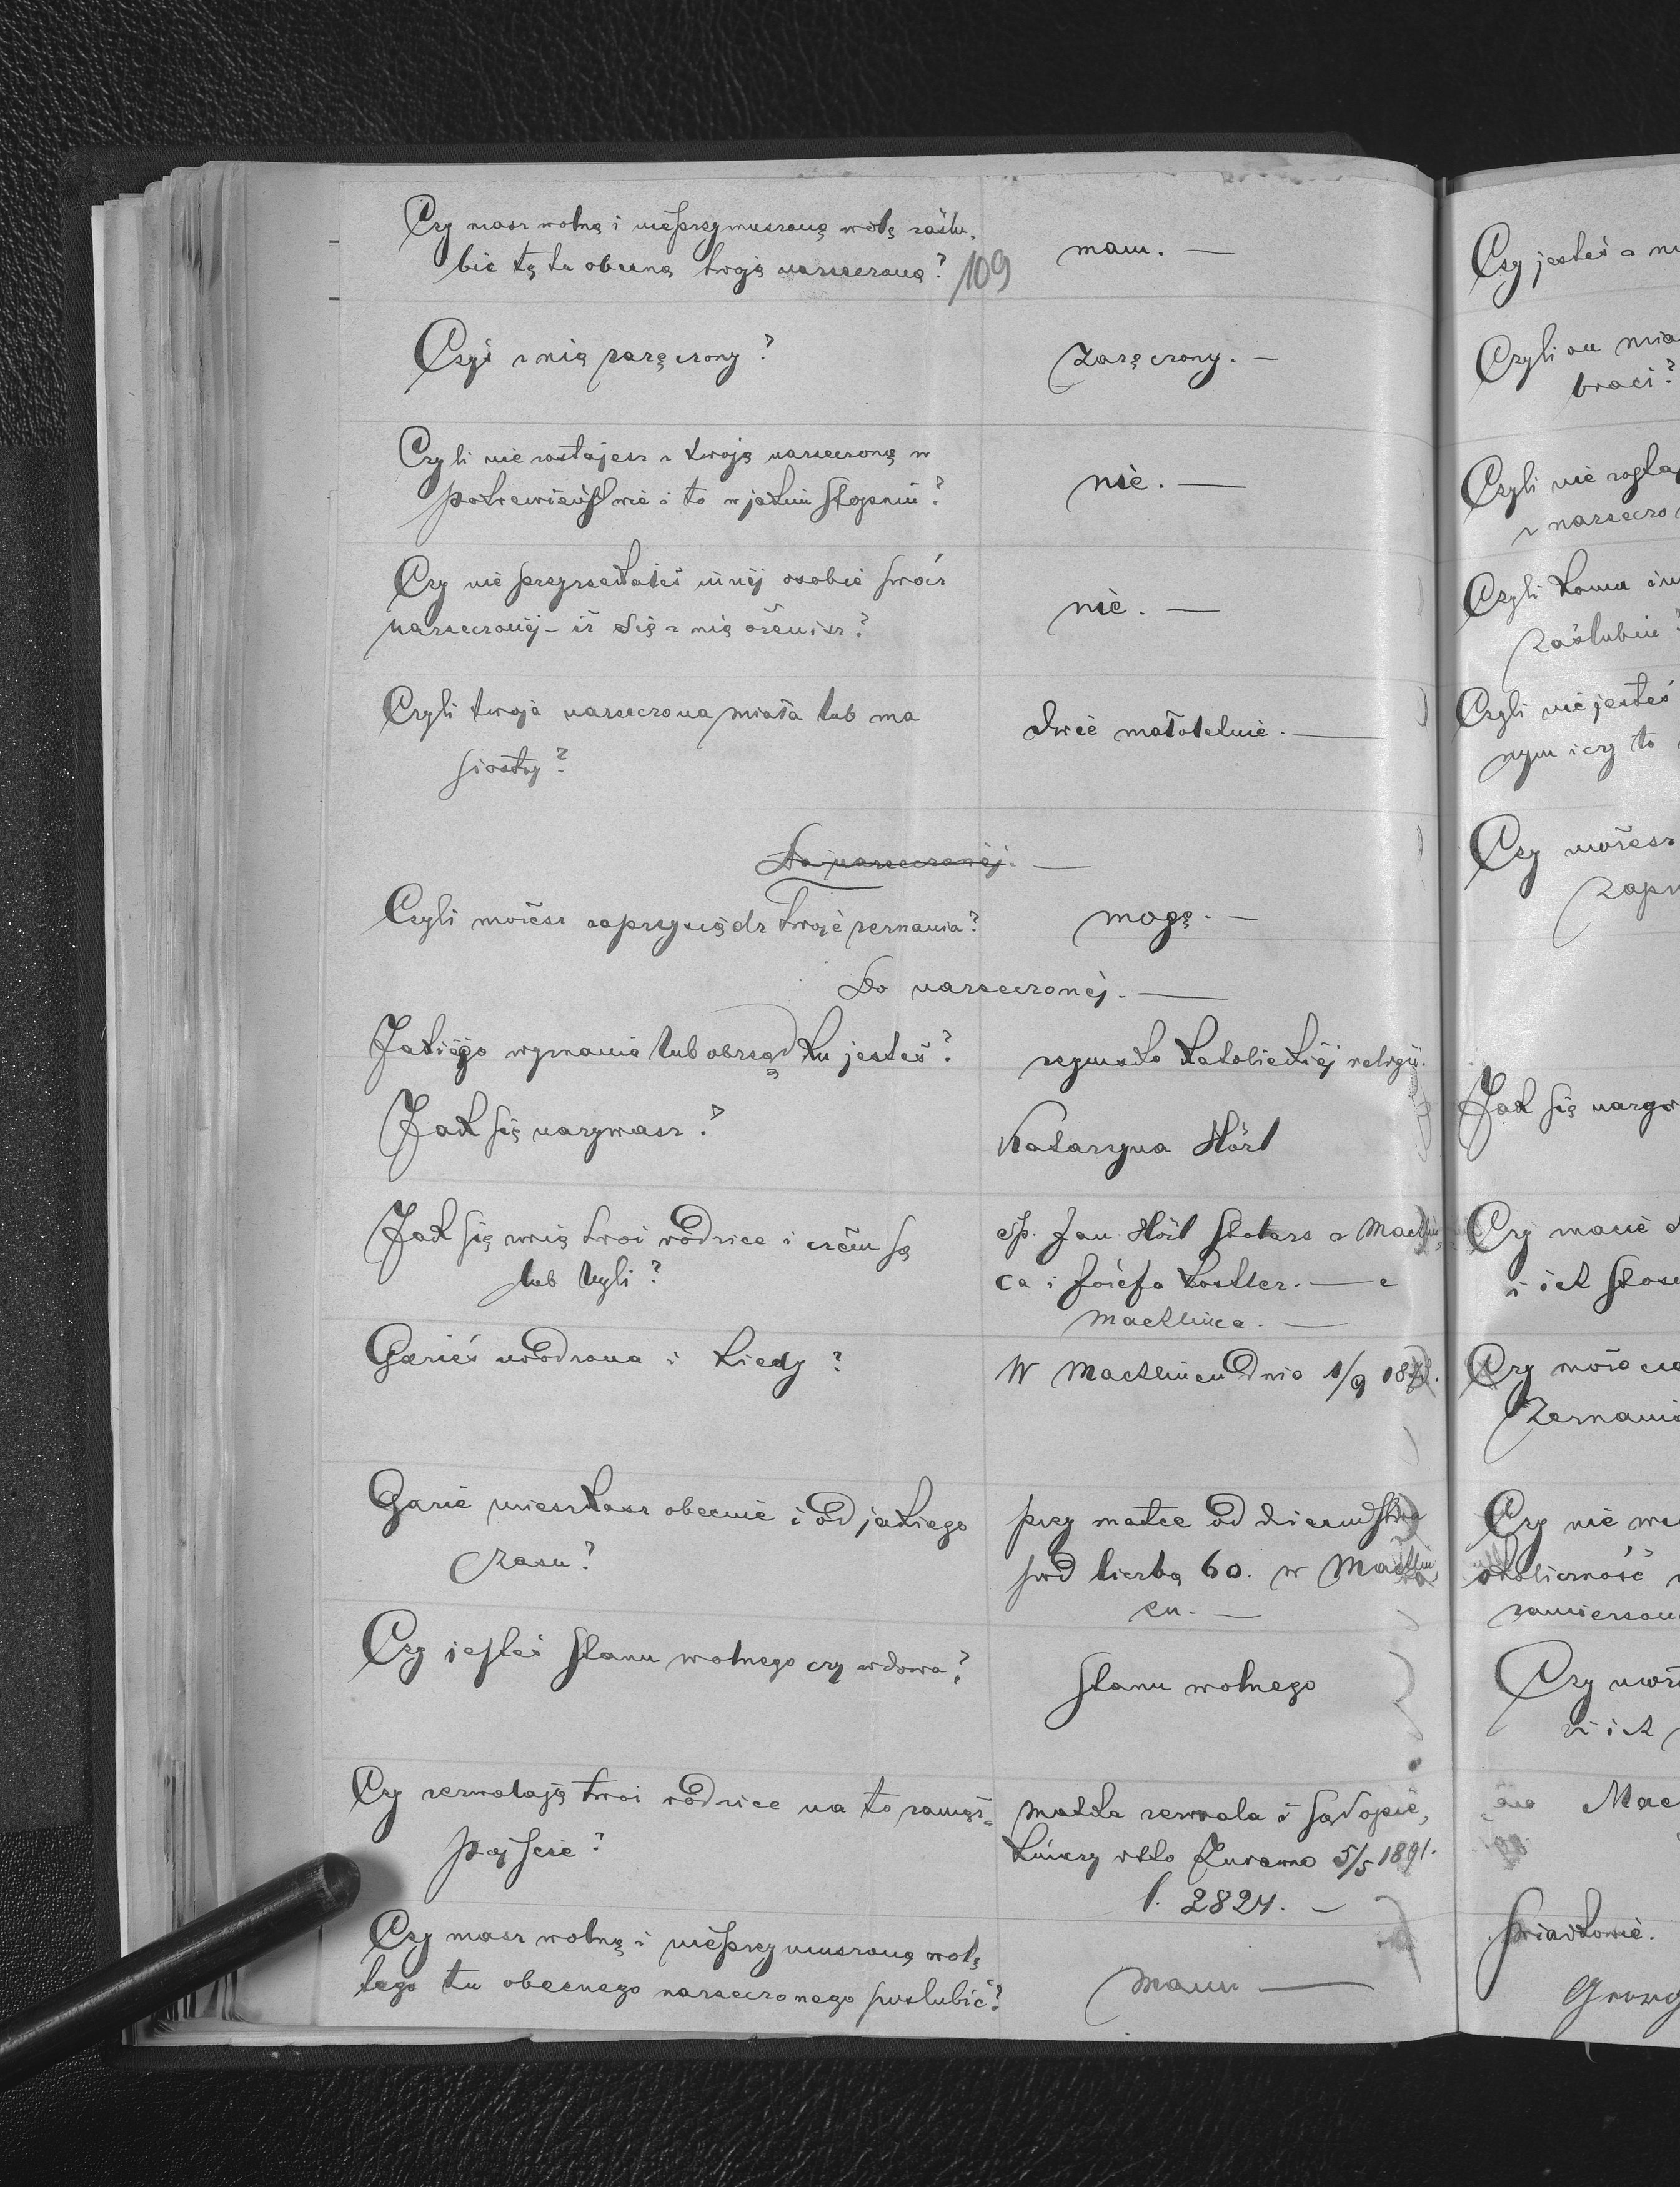 Czy masz wolną i nieprzymuszoną wolę zaślu-
bić tą tu obecną twoją narzeczoną? mam. —
109
Czyś z nią zaręczony? Zaręczony. —
Czyli nie zostajesz z twoją narzeczoną w
pokrewieństwie i to w jakim stopniu? nie. —
Czy nie przyrzekałeś innéj osobie prócz
narzeczonéj – iż się z nią ożenisz? nie. —
Czyli twoja narzeczona miała lub ma
siostry? dwie małoletnie. —
Do narzeczonéj. —
Czyli możesz zaprzysiądz twoje zeznania? mogę. —
Do narzeczonéj. —
Jakiego wyznania lub obrządku jesteś? rzymsko katolickiéj religii.
Jak się nazywasz? Katarzyna Hörl
Jak się zwią twoi rodzice i czém są
lub byli?
śp. Jan Hörl stolarz z Machlin-
ca i Józefa
Machlinca. —
Gdzieś urodzona i kiedy? W Machlincu dnia 1/9
Gdzie mieszkasz obecnie i od jakiego
czasu?
przy matce od dzieciństwa
pod liczbą 60. w Machlin
cu. —
Czy jesteś stanu wolnego czy wdowa? Stanu wolnego
Czy zezwalają twoi rodzice na to zamąż-
pójście?
matka zezwala i sąd opie-
kuńczy Żurawno 5/5 1891.
l. 2824. —
Czy masz wolną i nieprzymuszoną wolę
tego tu obecnego narzeczonego poślubić? Mam —
Czy jesteś z
Czyli on mia
braci?
Czyli nie
z narzeczo
Czyli komu
zaślubin?
Czyli nie jesteś
nym i czy to
Czy możesz
zapr
Jak się nazyw
Czy macie
i ich
Czy możecie
Zeznania
Czy nie
okoliczność
zamierzon
Czy
i ich
Mac
Świadkowie.
Georg